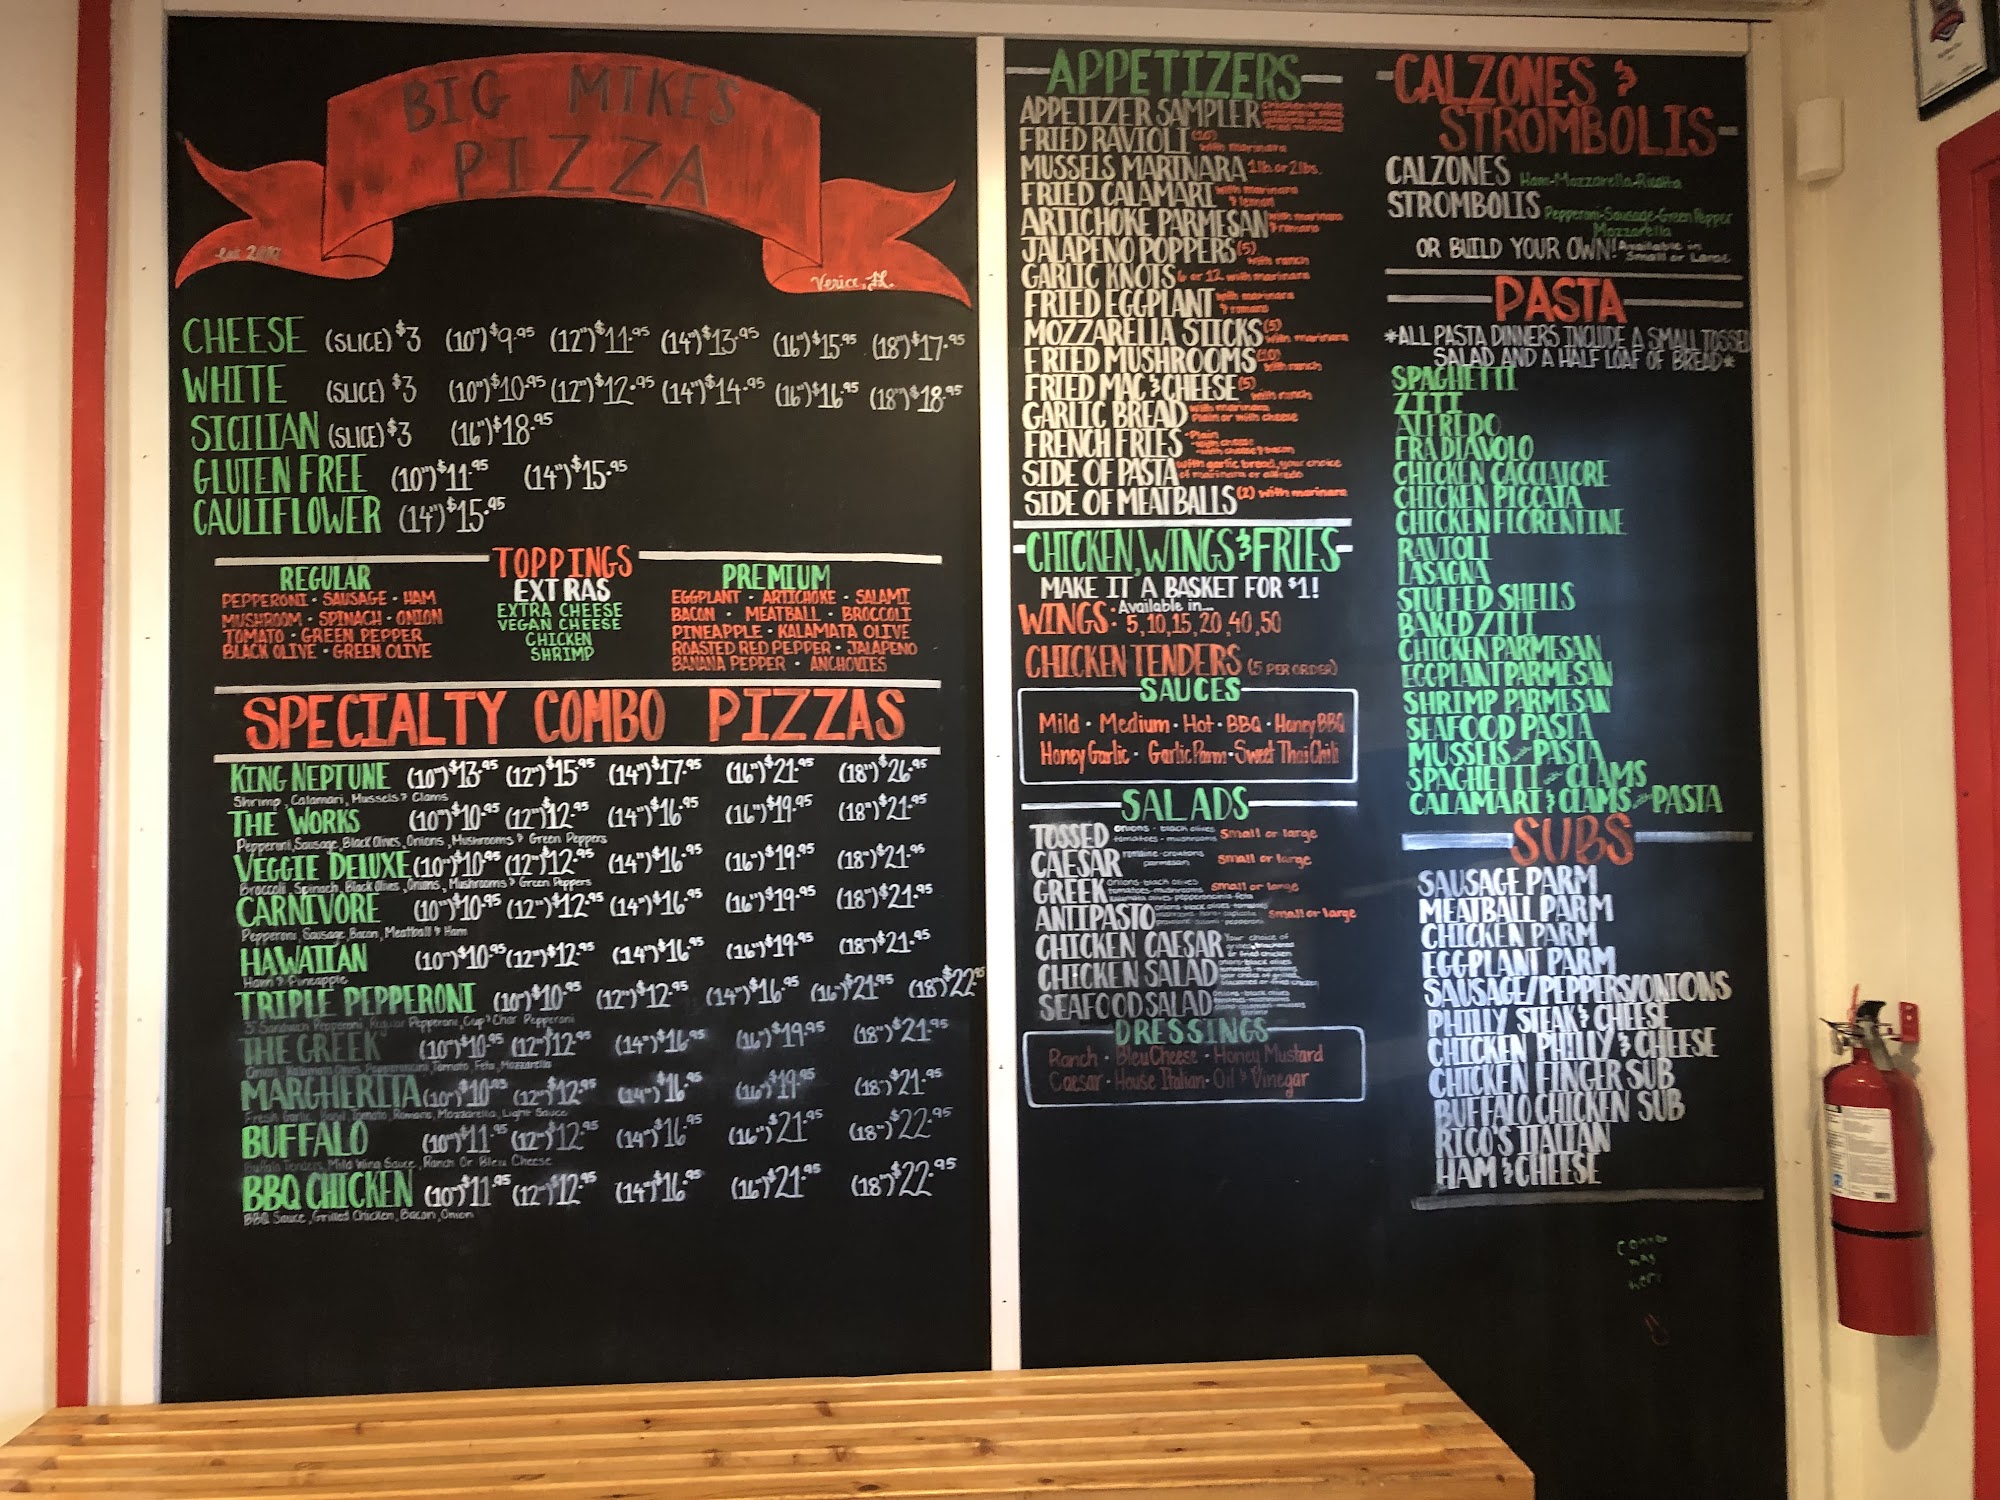 BIG MIKES
PIZZA
Venice, FL
CHEESE (SLICE) $3 (10") $9.95 (12") $11.95 (14") $13.95 (16") $15.95 (18") $17.95
WHITE (SLICE) $3 (10") $10.95 (12") $12.95 (14") $14.95 (16") $16.95 (18") $18.95
SICILIAN (SLICE) $3 (16") $18.95
GLUTEN FREE (10") $11.95 (14") $15.95
CAULIFLOWER (14") $15.95
TOPPINGS
REGULAR
PEPPERONI • SAUSAGE • HAM
MUSHROOM • SPINACH • ONION
TOMATO • GREEN PEPPER
BLACK OLIVE • GREEN OLIVE
EXTRAS
EXTRA CHEESE
VEGAN CHEESE
CHICKEN
SHRIMP
PREMIUM
EGGPLANT • ARTICHOKE • SALAMI
BACON • MEATBALL • BROCCOLI
PINEAPPLE • KALAMATA OLIVE
ROASTED RED PEPPER • JALAPENO
BANANA PEPPER • ANCHOVIES
SPECIALTY COMBO PIZZAS
KING NEPTUNE (10") $13.95 (12") $15.95 (14") $17.95 (16") $21.95 (18") $26.95
Shrimp, Calamari, Mussels & Clams
THE WORKS (10") $10.95 (12") $12.95 (14") $16.95 (16") $19.95 (18") $21.95
Pepperoni, Sausage, Black Olives, Onions, Mushrooms & Green Peppers
VEGGIE DELUXE (10") $10.95 (12") $12.95 (14") $16.95 (16") $19.95 (18") $21.95
Broccoli, Spinach, Black Olives, Onions, Mushrooms & Green Peppers
CARNIVORE (10") $10.95 (12") $12.95 (14") $16.95 (16") $19.95 (18") $21.95
Pepperoni, Sausage, Bacon, Meatball & Ham
HAWAIIAN (10") $10.95 (12") $12.95 (14") $16.95 (16") $19.95 (18") $21.95
Ham & Pineapple
TRIPLE PEPPERONI (10") $10.95 (12") $12.95 (14") $16.95 (16") $21.95 (18") $22.95
Sandwich Pepperoni, Regular Pepperoni, Cup & Char Pepperoni
THE GREEK (10") $10.95 (12") $12.95 (14") $16.95 (16") $19.95 (18") $21.95
Onion, Kalamata Olives, Pepperoncini, Tomato, Feta, Mozzarella
MARGHERITA (10") $10.95 (12") $12.95 (14") $16.95 (16") $19.95 (18") $21.95
Fresh Garlic, Basil, Tomato, Romano, Mozzarella, Light Sauce
BUFFALO (10") $11.95 (12") $12.95 (14") $16.95 (16") $21.95 (18") $22.95
Buffalo Tenders, Mild Wing Sauce, Ranch Or Bleu Cheese
BBQ CHICKEN (10") $11.95 (12") $12.95 (14") $16.95 (16") $21.95 (18") $22.95
BBQ Sauce, Grilled Chicken, Bacon, Onion
APPETIZERS
APPETIZER SAMPLER Chicken tenders mozzarella sticks
FRIED RAVIOLI (10) with marinara
MUSSELS MARINARA 1 lb. or 2 lbs.
FRIED CALAMARI with marinara & lemon
ARTICHOKE PARMESAN with marinara & romano
JALAPENO POPPERS (5) with ranch
GARLIC KNOTS 6 or 12 with marinara
FRIED EGGPLANT with marinara & romano
MOZZARELLA STICKS (5) with marinara
FRIED MUSHROOMS (10) with ranch
FRIED MAC & CHEESE (5) with ranch
GARLIC BREAD with marinara Plain or with cheese
FRENCH FRIES •Plain •with cheese •with cheese & bacon
SIDE OF PASTA with garlic bread, your choice of marinara or alfredo
SIDE OF MEATBALLS (2) with marinara
CHICKEN, WINGS & FRIES
MAKE IT A BASKET FOR $1!
WINGS • Available in... 5, 10, 15, 20, 40, 50
CHICKEN TENDERS (5 PER ORDER)
SAUCES
Mild • Medium • Hot • BBQ • Honey BBQ
Honey Garlic • Garlic Parm • Sweet Thai Chili
SALADS
TOSSED onions • black olives tomatoes • mushrooms small or large
CAESAR romaine • croutons parmesan small or large
GREEK onions • black olives tomatoes • mushrooms kalamata olives • pepperoncini • feta small or large
ANTIPASTO onions • black olives • tomatoes small or large
CHICKEN CAESAR Your choice of grilled, blackened or fried chicken
CHICKEN SALAD onions • black olives tomatoes • mushrooms your choice of grilled, blackened or fried chicken
SEAFOOD SALAD onions • black olives
DRESSINGS
Ranch • Bleu Cheese • Honey Mustard
Caesar • House Italian • Oil & Vinegar
CALZONES &
STROMBOLIS
CALZONES Ham-Mozzarella-Ricotta
STROMBOLIS Pepperoni-Sausage-Green Pepper
Mozzarella
OR BUILD YOUR OWN! Available in Small or Large
PASTA
*ALL PASTA DINNERS INCLUDE A SMALL TOSSED
SALAD AND A HALF LOAF OF BREAD*
SPAGHETTI
ZITI
ALFREDO
FRA DIAVOLO
CHICKEN CACCIATORE
CHICKEN PICCATA
CHICKEN FLORENTINE
RAVIOLI
LASAGNA
STUFFED SHELLS
BAKED ZITI
CHICKEN PARMESAN
EGGPLANT PARMESAN
SHRIMP PARMESAN
SEAFOOD PASTA
MUSSELS with PASTA
SPAGHETTI with CLAMS
CALAMARI & CLAMS with PASTA
SUBS
SAUSAGE PARM
MEATBALL PARM
CHICKEN PARM
EGGPLANT PARM
SAUSAGE/PEPPERS/ONIONS
PHILLY STEAK & CHEESE
CHICKEN PHILLY & CHEESE
CHICKEN FINGER SUB
BUFFALO CHICKEN SUB
RICO'S ITALIAN
HAM & CHEESE
was
here